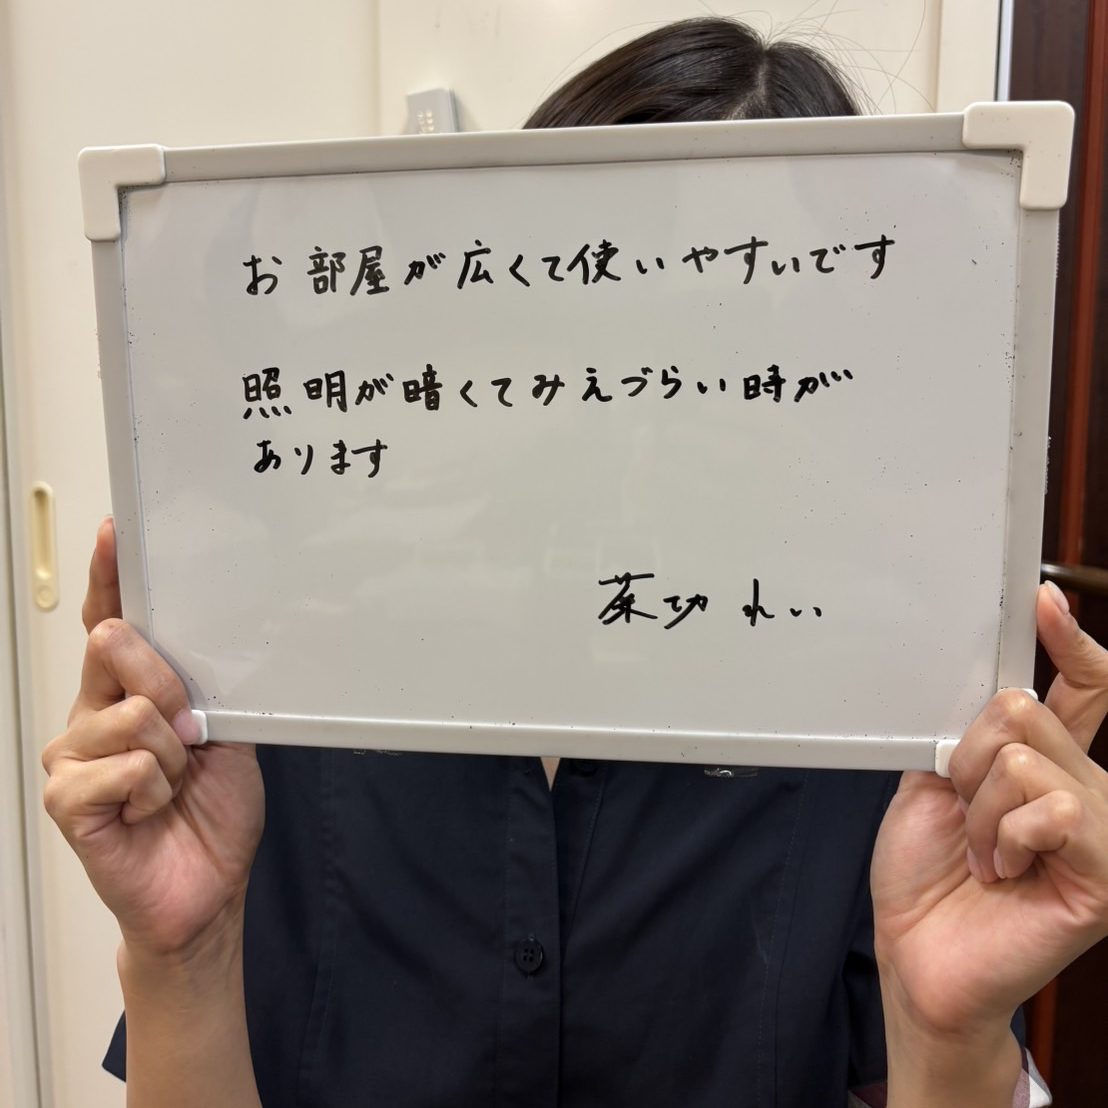 お部屋が広くて使いやすいです
照明が暗くてみえづらい時が
あります
れい